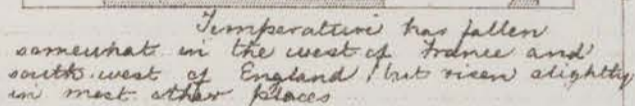 Temperature has fallen
somewhat in the west of France and
south west of England but risen slightly
in most other places